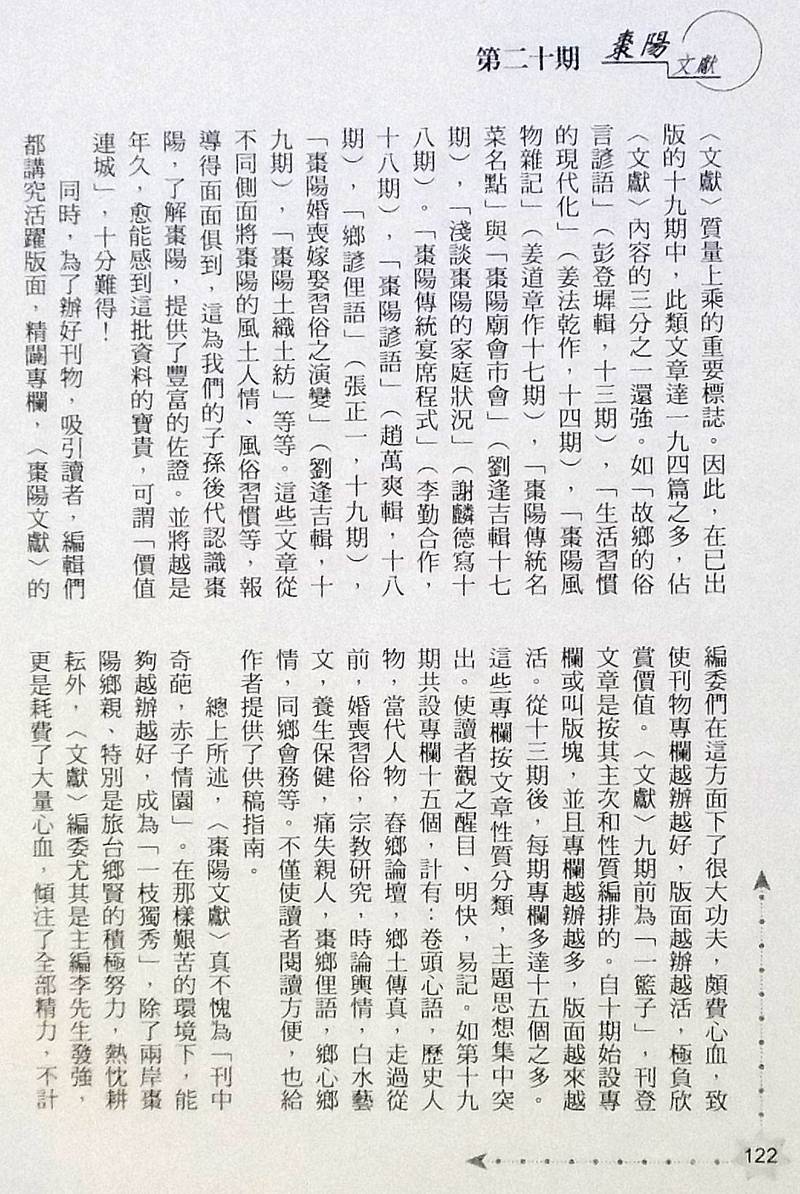 第二十期
棗陽
文獻
〈文獻〉質量上乘的重要標誌。因此，在已出
版的十九期中，此類文章達一九四篇之多，佔
〈文獻〉內容的三分之一還強。如「故鄉的俗
言諺語」（彭登墀輯，十三期），「生活習慣
的現代化」（姜法乾作，十四期），「棗陽風
物雜記」（姜道章作十七期），「棗陽傳統名
菜名點」與「棗陽廟會市會」（劉逢吉輯十七
期），「淺談棗陽的家庭狀況」（謝麟德寫十
八期）。「棗陽傳統宴席程式」（李勤合作，
十八期），「棗陽諺語」（趙萬爽輯，十八
期），「鄉諺俚語」（張正一，十九期），
「棗陽婚喪嫁娶習俗之演變」（劉逢吉輯，十
九期），「棗陽土織土紡」等等。這些文章從
不同側面將棗陽的風土人情、風俗習慣等，報
導得面面俱到，這為我們的子孫後代認識棗
陽，了解棗陽，提供了豐富的佐證。並將越是
年久，愈能感到這批資料的寶貴，可謂「價值
連城」，十分難得！
同時，為了辦好刊物，吸引讀者，編輯們
都講究活躍版面，精闢專欄，〈棗陽文獻〉的
編委們在這方面下了很大功夫，頗費心血，致
使刊物專欄越辦越好，版面越辦越活，極負欣
賞價值。〈文獻〉九期前為「一籃子」，刊登
文章是按其主次和性質編排的。自十期始設專
欄或叫版塊，並且專欄越辦越多，版面越來越
活。從十三期後，每期專欄多達十五個之多。
這些專欄按文章性質分類，主題思想集中突
出。使讀者觀之醒目、明快，易記。如第十九
期共設專欄十五個，計有：卷頭心語，歷史人
物，當代人物，春鄉論壇，鄉土傳真，走過從
前，婚喪習俗，宗教研究，時論輿情，白水藝
文，養生保健，痛失親人，棗鄉俚語，鄉心鄉
情，同鄉會務等。不僅使讀者閱讀方便，也給
作者提供了供稿指南。
總上所述，〈棗陽文獻〉真不愧為「刊中
奇葩，赤子情園」。在那樣艱苦的環境下，能
夠越辦越好，成為「一枝獨秀」，除了兩岸棗
陽鄉親、特別是旅台鄉賢的積極努力，熱忱耕
耘外，〈文獻〉編委尤其是主編李先生發強，
更是耗費了大量心血，傾注了全部精力，不計
122